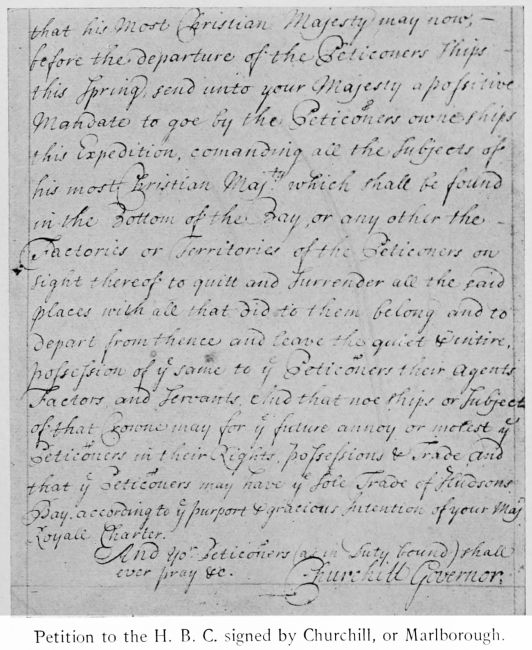 that his Most Christian Majesty may now, –
before the departure of the Peticoners Ships –
this Spring, send unto your Majesty a possitive
Mandate to goe by the Peticoners owne ships
this Expedition, comanding all the Subjects of
his most Christian Maj.ts which shall be found
in the Bottom of the Bay, or any other the –
Factories or Territories of the Peticoners on
sight thereof to quitt and Surrender all the said
places with all that did to them belong and to
Depart from thence and leave the quiet & entire,
possession of ye same to ye Peticoners their Agents
Factors, and Servants, And that noe ships or Subjects
of that Crowne may for ye future annoy or molest ye
Peticoners in their Rights, possessions & Trade And
that ye Peticoners may have ye Sole Trade of Hudsons
Bay, according to ye purport & gracious Intention of your Maj
Royale Charter.
And yor Peticoners (as in Duty bound) shall
ever pray &c. Churchill Governor.
Petition to the H. B. C. signed by Churchill, or Marlborough.